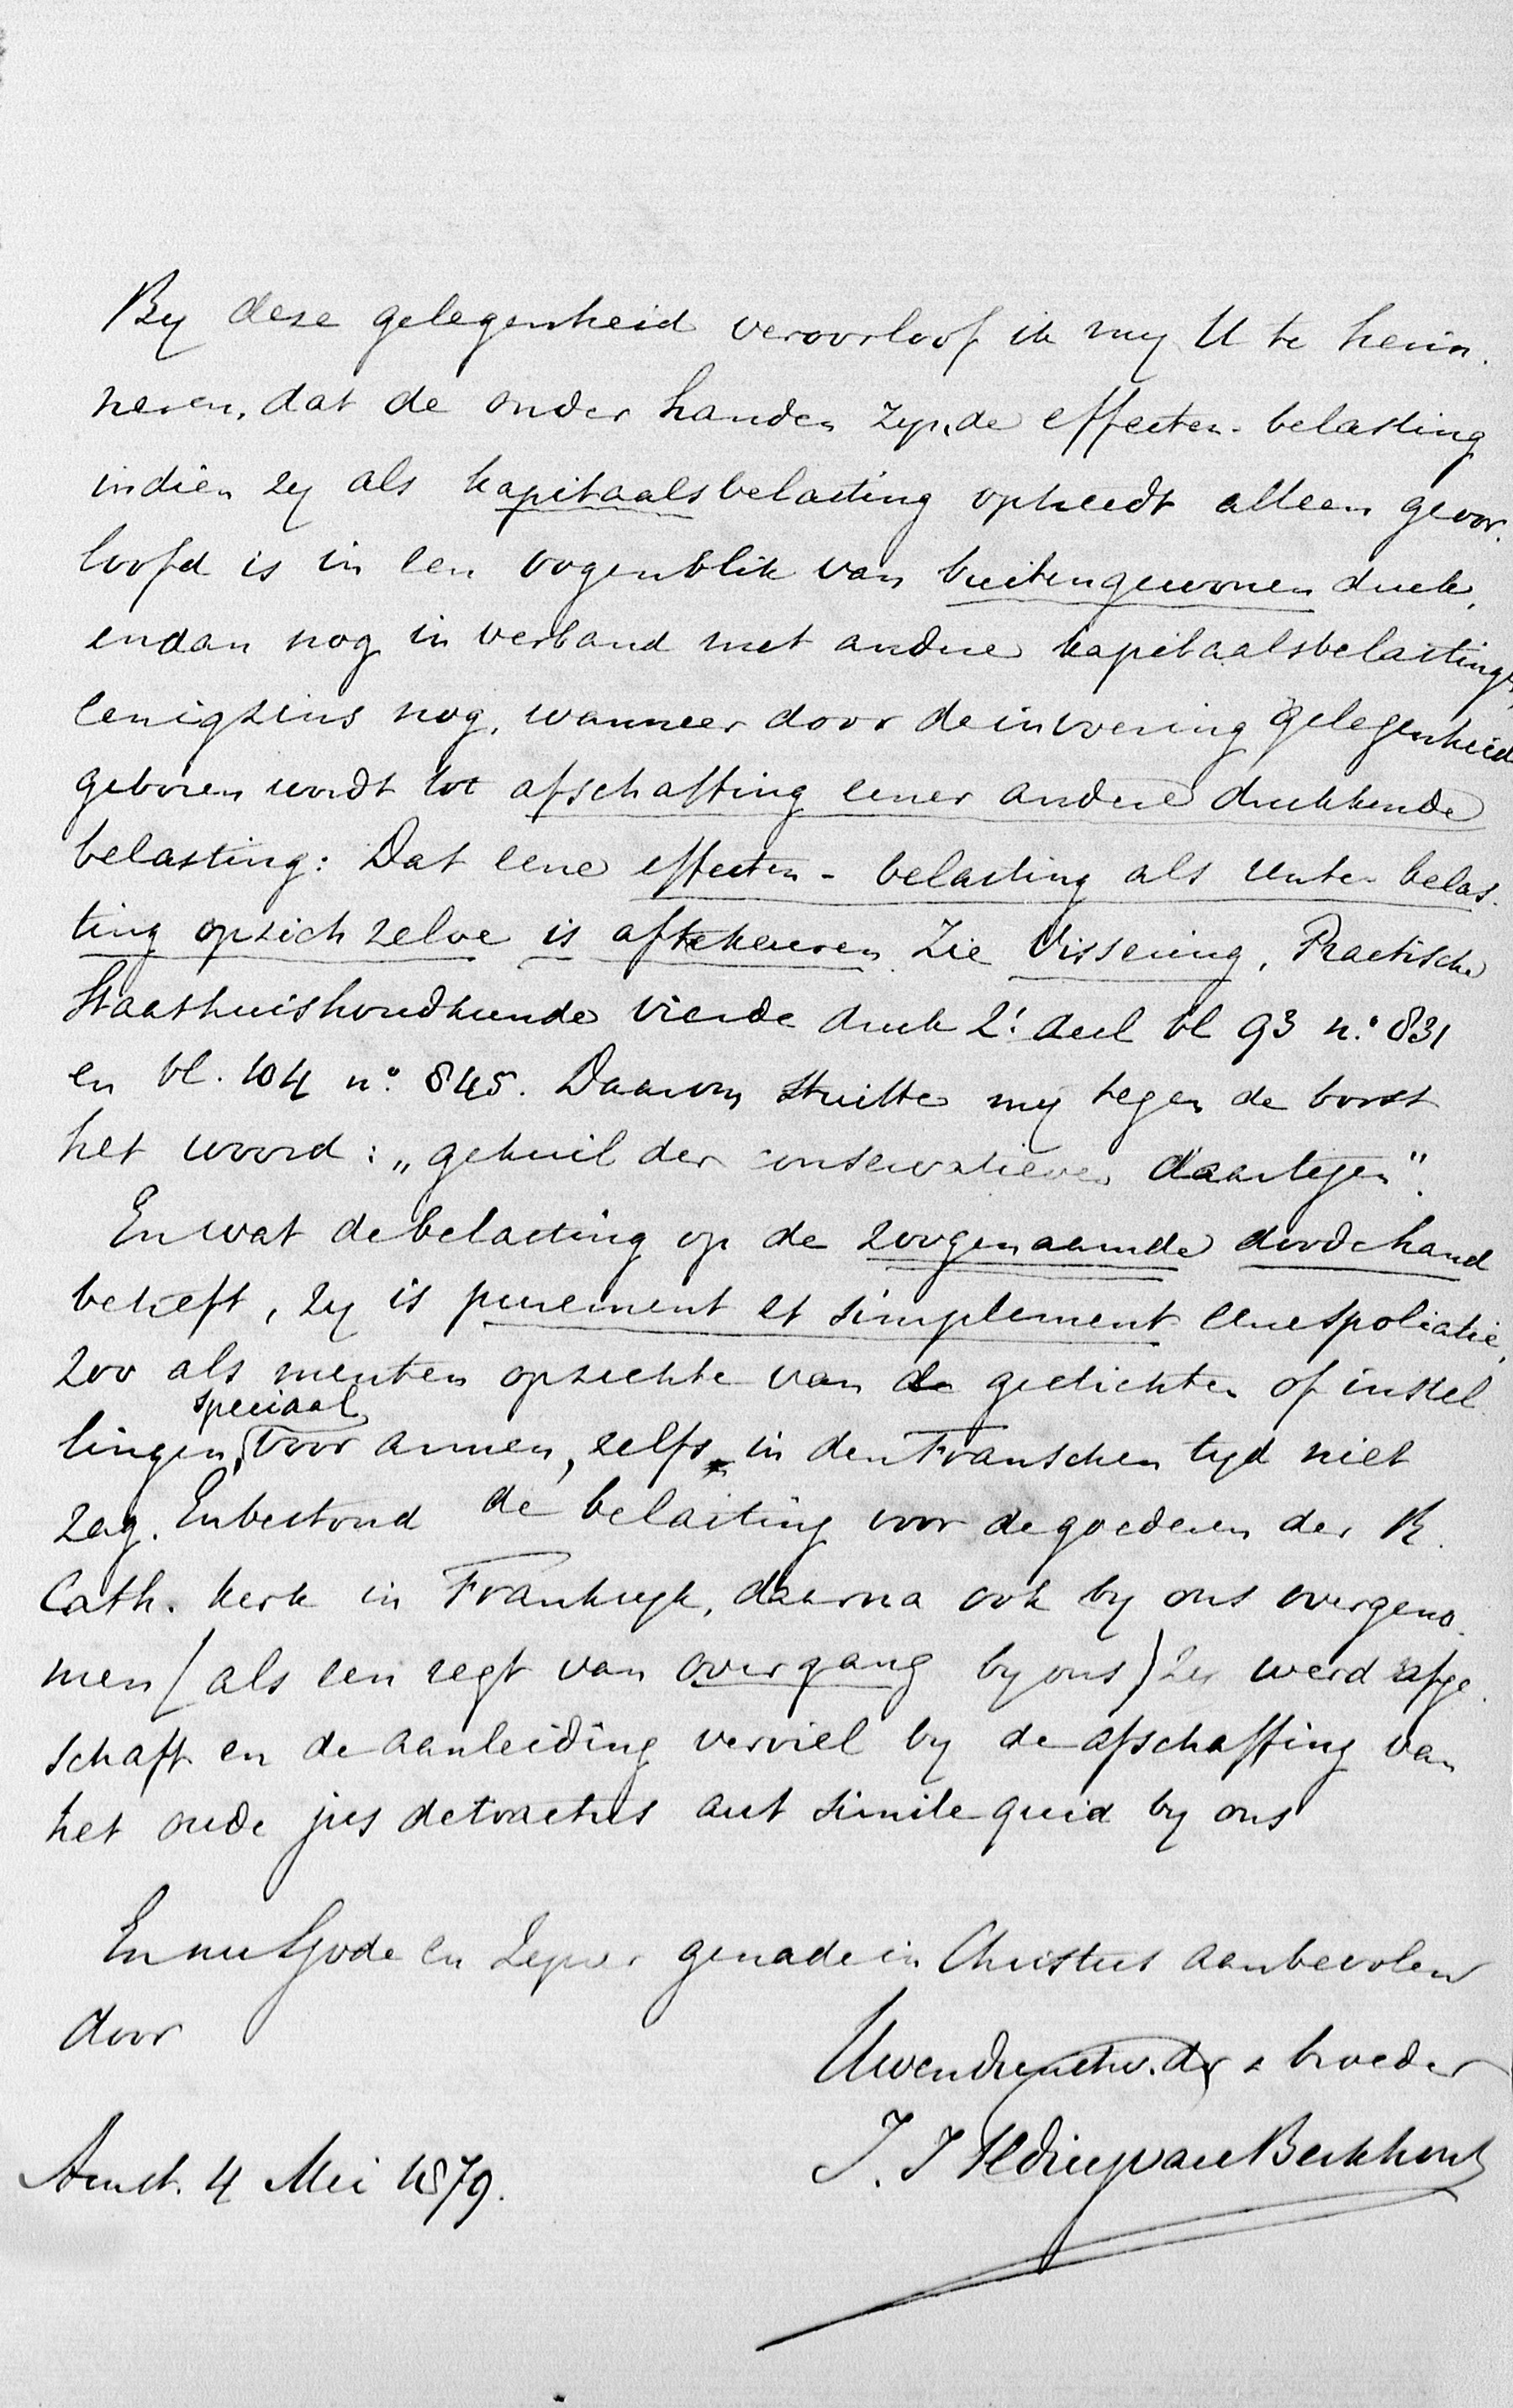 By deze gelegenheid veroorloof ik my U te herin-
neren, dat de onder handen zynde effecten-belasting
indien zy als kapitaalsbelasting optreedt alleen geoor-
loofd is in een oogenblik van buitengewonen druk,
en dan nog in verband met andere kapitaalsbelastingen
eenigzins nog, wanneer door de invoering gelegenheid
geboren wordt tot afschaffing eener andere drukkende
belasting: Dat eene effecten-belasting als rente-belas-
ting op zich zelve is aftekeuren. Zie Vissering, Practische
Staathuishoudkunde vierde druk 2e deel bl 93 no. 831
en bl. 104 no. 845. Daarom stuitte my tegen de borst
het woord: „gehuil der conservatieven daartegen".
En wat de belasting op de zoogenaamde doode hand
betreft, zy is purement et simplement eene spoliatie,
zoo als men ten opzichte van de gestichten of instel-
speciaal
lingen, voor armen, zelfs in den Franschen tyd niet
zag. En bestond de belasting voor de goederen der R.
Cath. kerk in Frankryk, daarna ook by ons overgeno-
men (als een regt van overgang by ons) zy werd afge-
schaft en de aanleiding verviel by de afschaffing van
het oude jus detractus aut simile quid by ons
En nu Gode en Zyner genade in Christus aanbevolen
door
Uwen dienstw. dr & broeder
J. J. Teding van Berkhout
Amst. 4 Mei 1879.